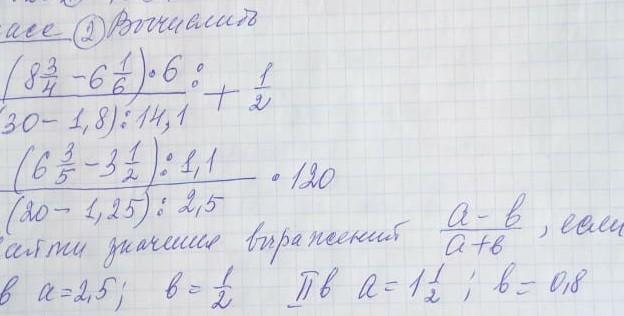 ② Вычислить
(8 3/4 − 6 1/6) · 6 : + 1/2
30 − 1,8) : 14,1
(6 3/5 − 3 1/2) : 1,1 · 120
(20 − 1,25) : 2,5
значение выражений a − b / a + b, если
в a = 2,5; b = 1/2 II в a = 1 1/2; b = 0,8